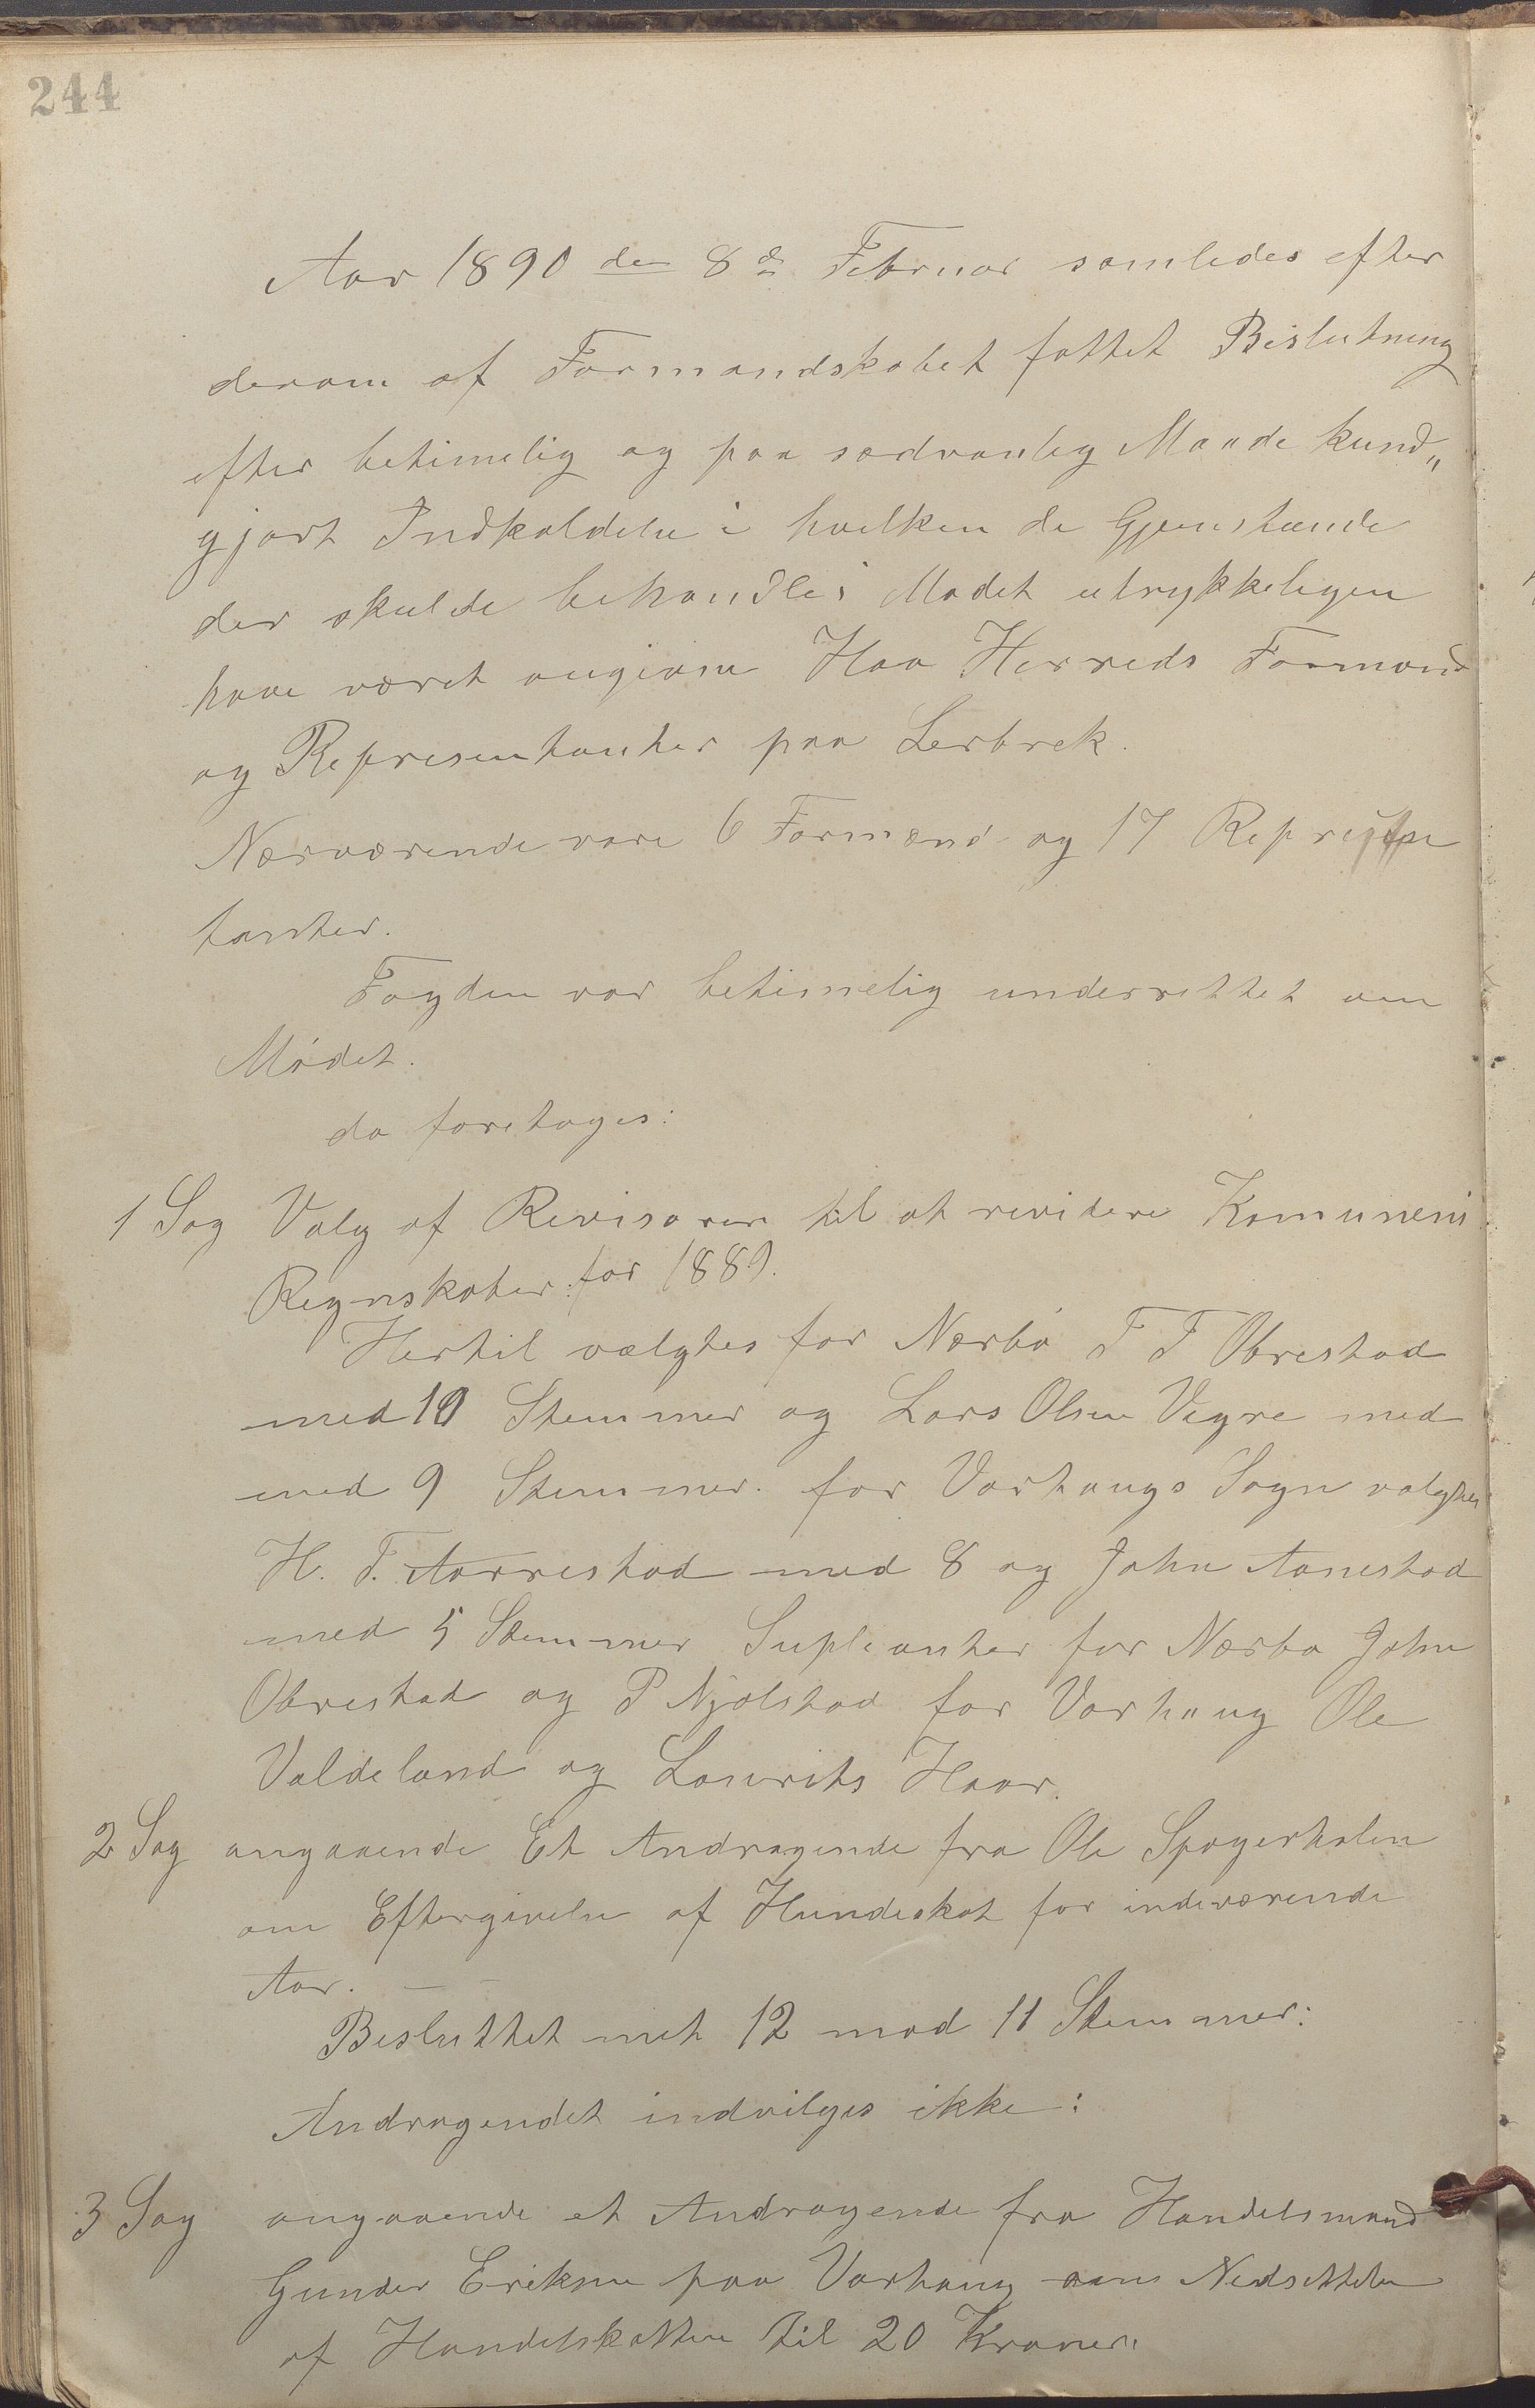 244
Aar 1890 den 8de Februar samledes efter
derom af Formandskabet fattet Beslutning
efter betimelig og paa sædvanlig Maade kund„
gjort Indkaldelse i hvilken de Gjenstande
der skulde behandles i Mødet utrykkeligen
have været angivne Haa Herreds Formænd
og Representanter paa Lerbrek.
Nærværende vare 6 Formænd og 17 Represen
tanter.
Fogden var betimelig underrettet om
Mødet.
da foretoges:
1 Sag Valg af Revisorer til at revidere Komunens
Regnskaber: for 1889.
Hertil valgtes for Nærbø T T Obrestad
med 10 Stemmer og Lars Olsen Vigre med
med 9 Stemmer. for Varhaugs Sogn valgtes
H. T. Aarrestad med 8 og John Aanestad
med 5 Stemmer Supleanter for Nærbø John
Obrestad og P Njølstad for Varhaug Ole
Valdeland og Laurits Haar.
2 Sag angaaende Et Andragende fra Ole
om Eftergivelse af Hundeskat for indeværende
Aar. — —
Besluttet met 12 mod 11 Stemmer:
Andragendet indvilges ikke:
3 Sag angaaende et Andragende fra Handelsmand
Gunder Eriksen paa Varhaug om Nedsettelse
af Handelskatten til 20 Kroner: